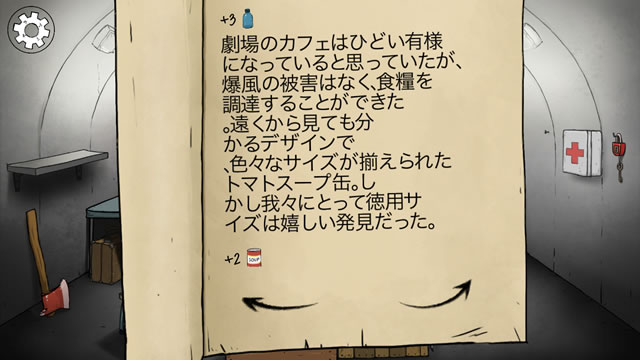 +3
劇場のカフェはひどい有様
になっていると思っていたが、
爆風の被害はなく、食糧を
調達することができた
。遠くから見ても分
かるデザインで
、色々なサイズが揃えられた
トマトスープ缶。し
かし我々にとって徳用サ
イズは嬉しい発見だった。
+2 SOUP